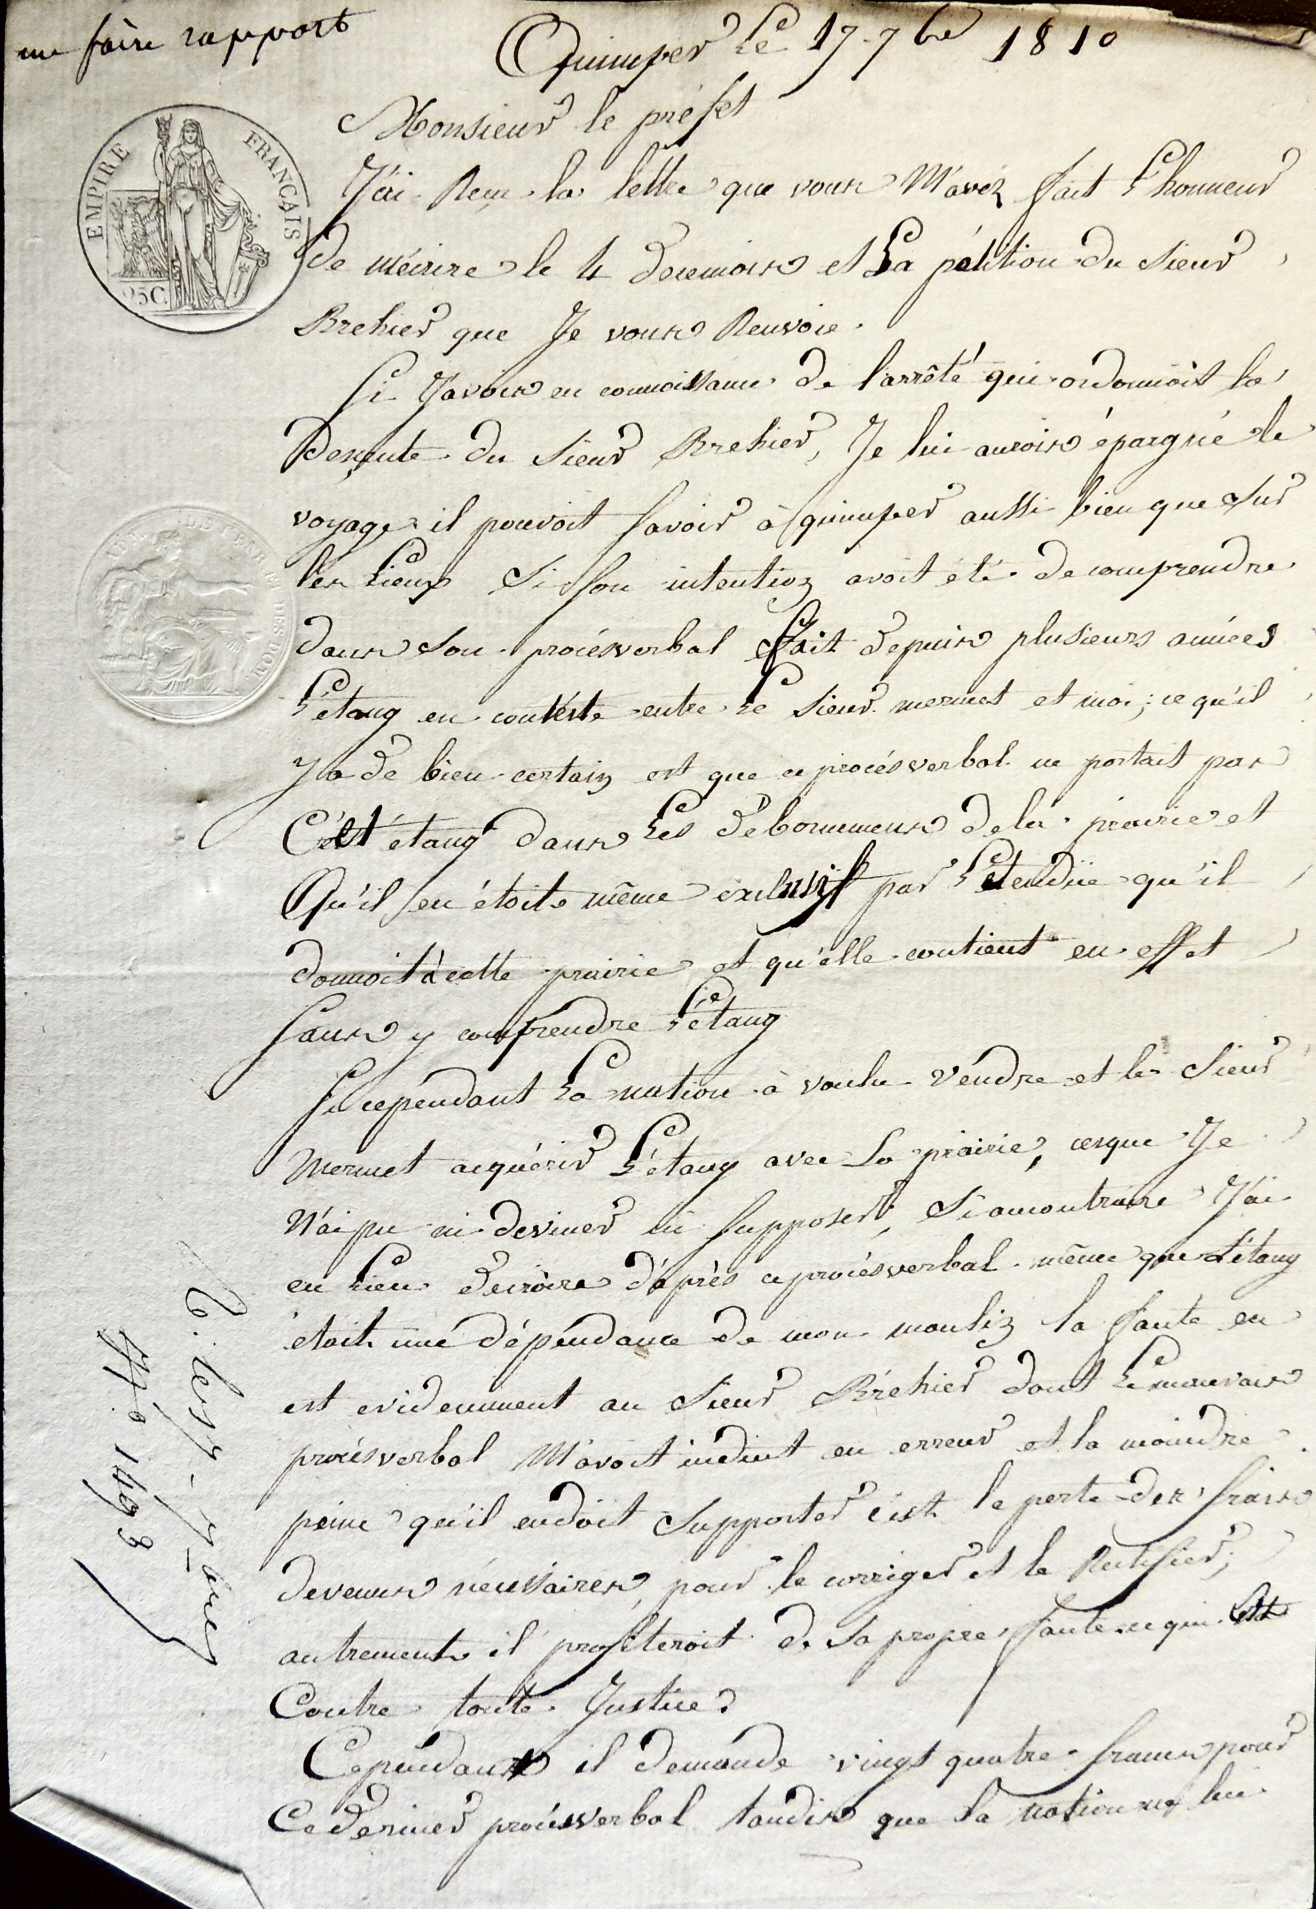 me faire rapport
Quimper Le 17 7bre 1810
Monsieur le préfet
J'ai Reçu la lettre que vous M'avez fait L'honneur
de mécrire le 4 docemois et La pétition du Sieur
Brehier que Je vous Renvoie.
Si J'avois eu connoissance de l'arrêté qui ordonnoit la
Descente du Sieur Brehier, Je lui aurois épargné le
voyage il pouvoit Savoir à quimper aussi bien que Sur
les Lieux Si Son intention avoit été de comprendre
dans Son procésverbal fait depuis plusieurs années
L'étang en conteste entre Le Sieur mermet et moi; ce qu'il
y a de bien certain est que ce procésverbal ne portait pas
Cet étang dans Les debornemens dela prairie et
Qu'il en étoit même exclusif par L'etendüe qu'il
donnoit à cette prairie et qu'elle contient en effet
Sans y comprendre L'étang
Si cependant La nation à voulu vendre et le Sieur
Mermet acquérir L'étang avec La prairie, ceque Je
N'ai pu ni deviner ni Supposer, Si aucontraire J'ai
eu Lieu decroire d'après ceprocésverbal même que L'étang
étoit une dépendance de mon moulin la faute en
est evidemment au Sieur Bréhier dont Le mauvais
procésverbal M'avoit induit en erreur et la moindre
peine qu'il endoit Supporter c'est la perte des frais
devenus nécessaires, pour le corriger et le Rectifier;
autrement il profiteroit de Sa propre faute ce qui est
Contre toute Justice.
Cependant il demande vingt quatre francs pour
Ce dernier procésverbal tandis que la nation ne lui
EMPIRE FRANÇAIS
25C.
No 1493